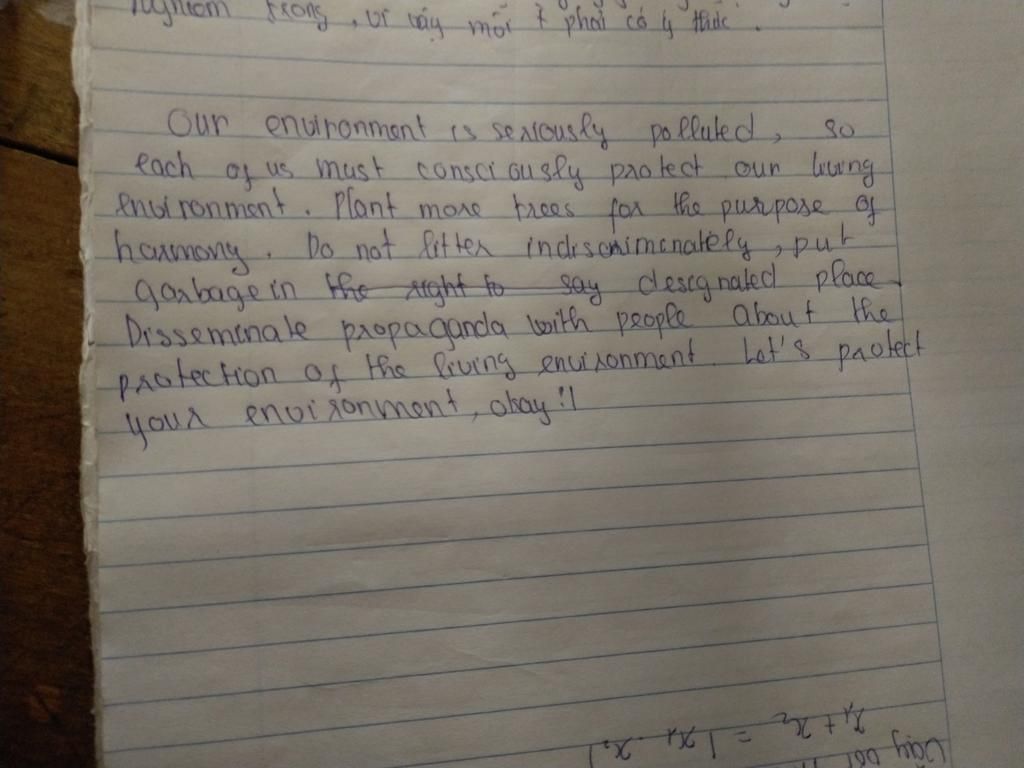 trọng, vì vậy mỗi phải có ý thức.
Our environment is seriously polluted, so
each of us must consciously protect our living
environment. Plant more trees for the purpose of
harmony. Do not litter indiscriminately, put
garbage in the right to say designated place
Disseminate propaganda with people about the
protection of the living environment. Let's protect
your environment, okay!!
x₁ + x₂ = | x₁ . x₂ |
Vậy